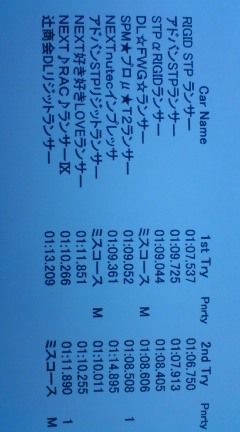 Car Name 1st Try Pnrty 2nd Try Pnrty
RIGID STP ランサー 01:07.537 01:06.750
アドバンSTPランサー 01:09.725 01:07.913
STPαRIGIDランサー 01:09.044 01:08.405
DL☆FWG☆ランサー ミスコース M 01:08.606
SPM★プロμ★T2ランサー 01:09.052 01:08.508 1
NEXTnutecインプレッサ 01:09.361 01:14.895
アドバンSTPリジットランサー ミスコース M 01:10.011
NEXT好き好きLOVEランサー 01:11.851 01:10.255
NEXT♪RAC♪ランサーⅨ 01:10.266 01:11.890 1
辻商会DLリジットランサー 01:13.209 ミスコース M